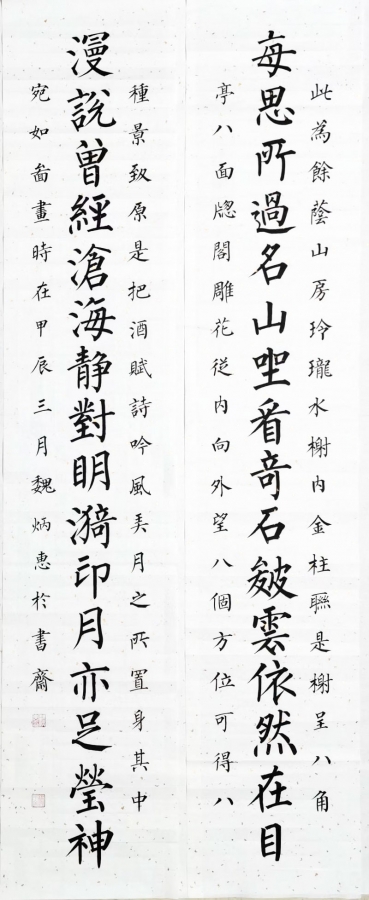 此為餘蔭山房玲瓏水榭内金柱聯是榭呈八角
每思所過名山坐看奇石皴雲依然在目
亭八面牕閣雕花從内向外望八個方位可得八
種景致原是把酒賦詩吟風弄月之所置身其中
漫說曾經滄海静對明漪印月亦足瑩神
宛如啚畫時在甲辰三月魏炳惠於書齋